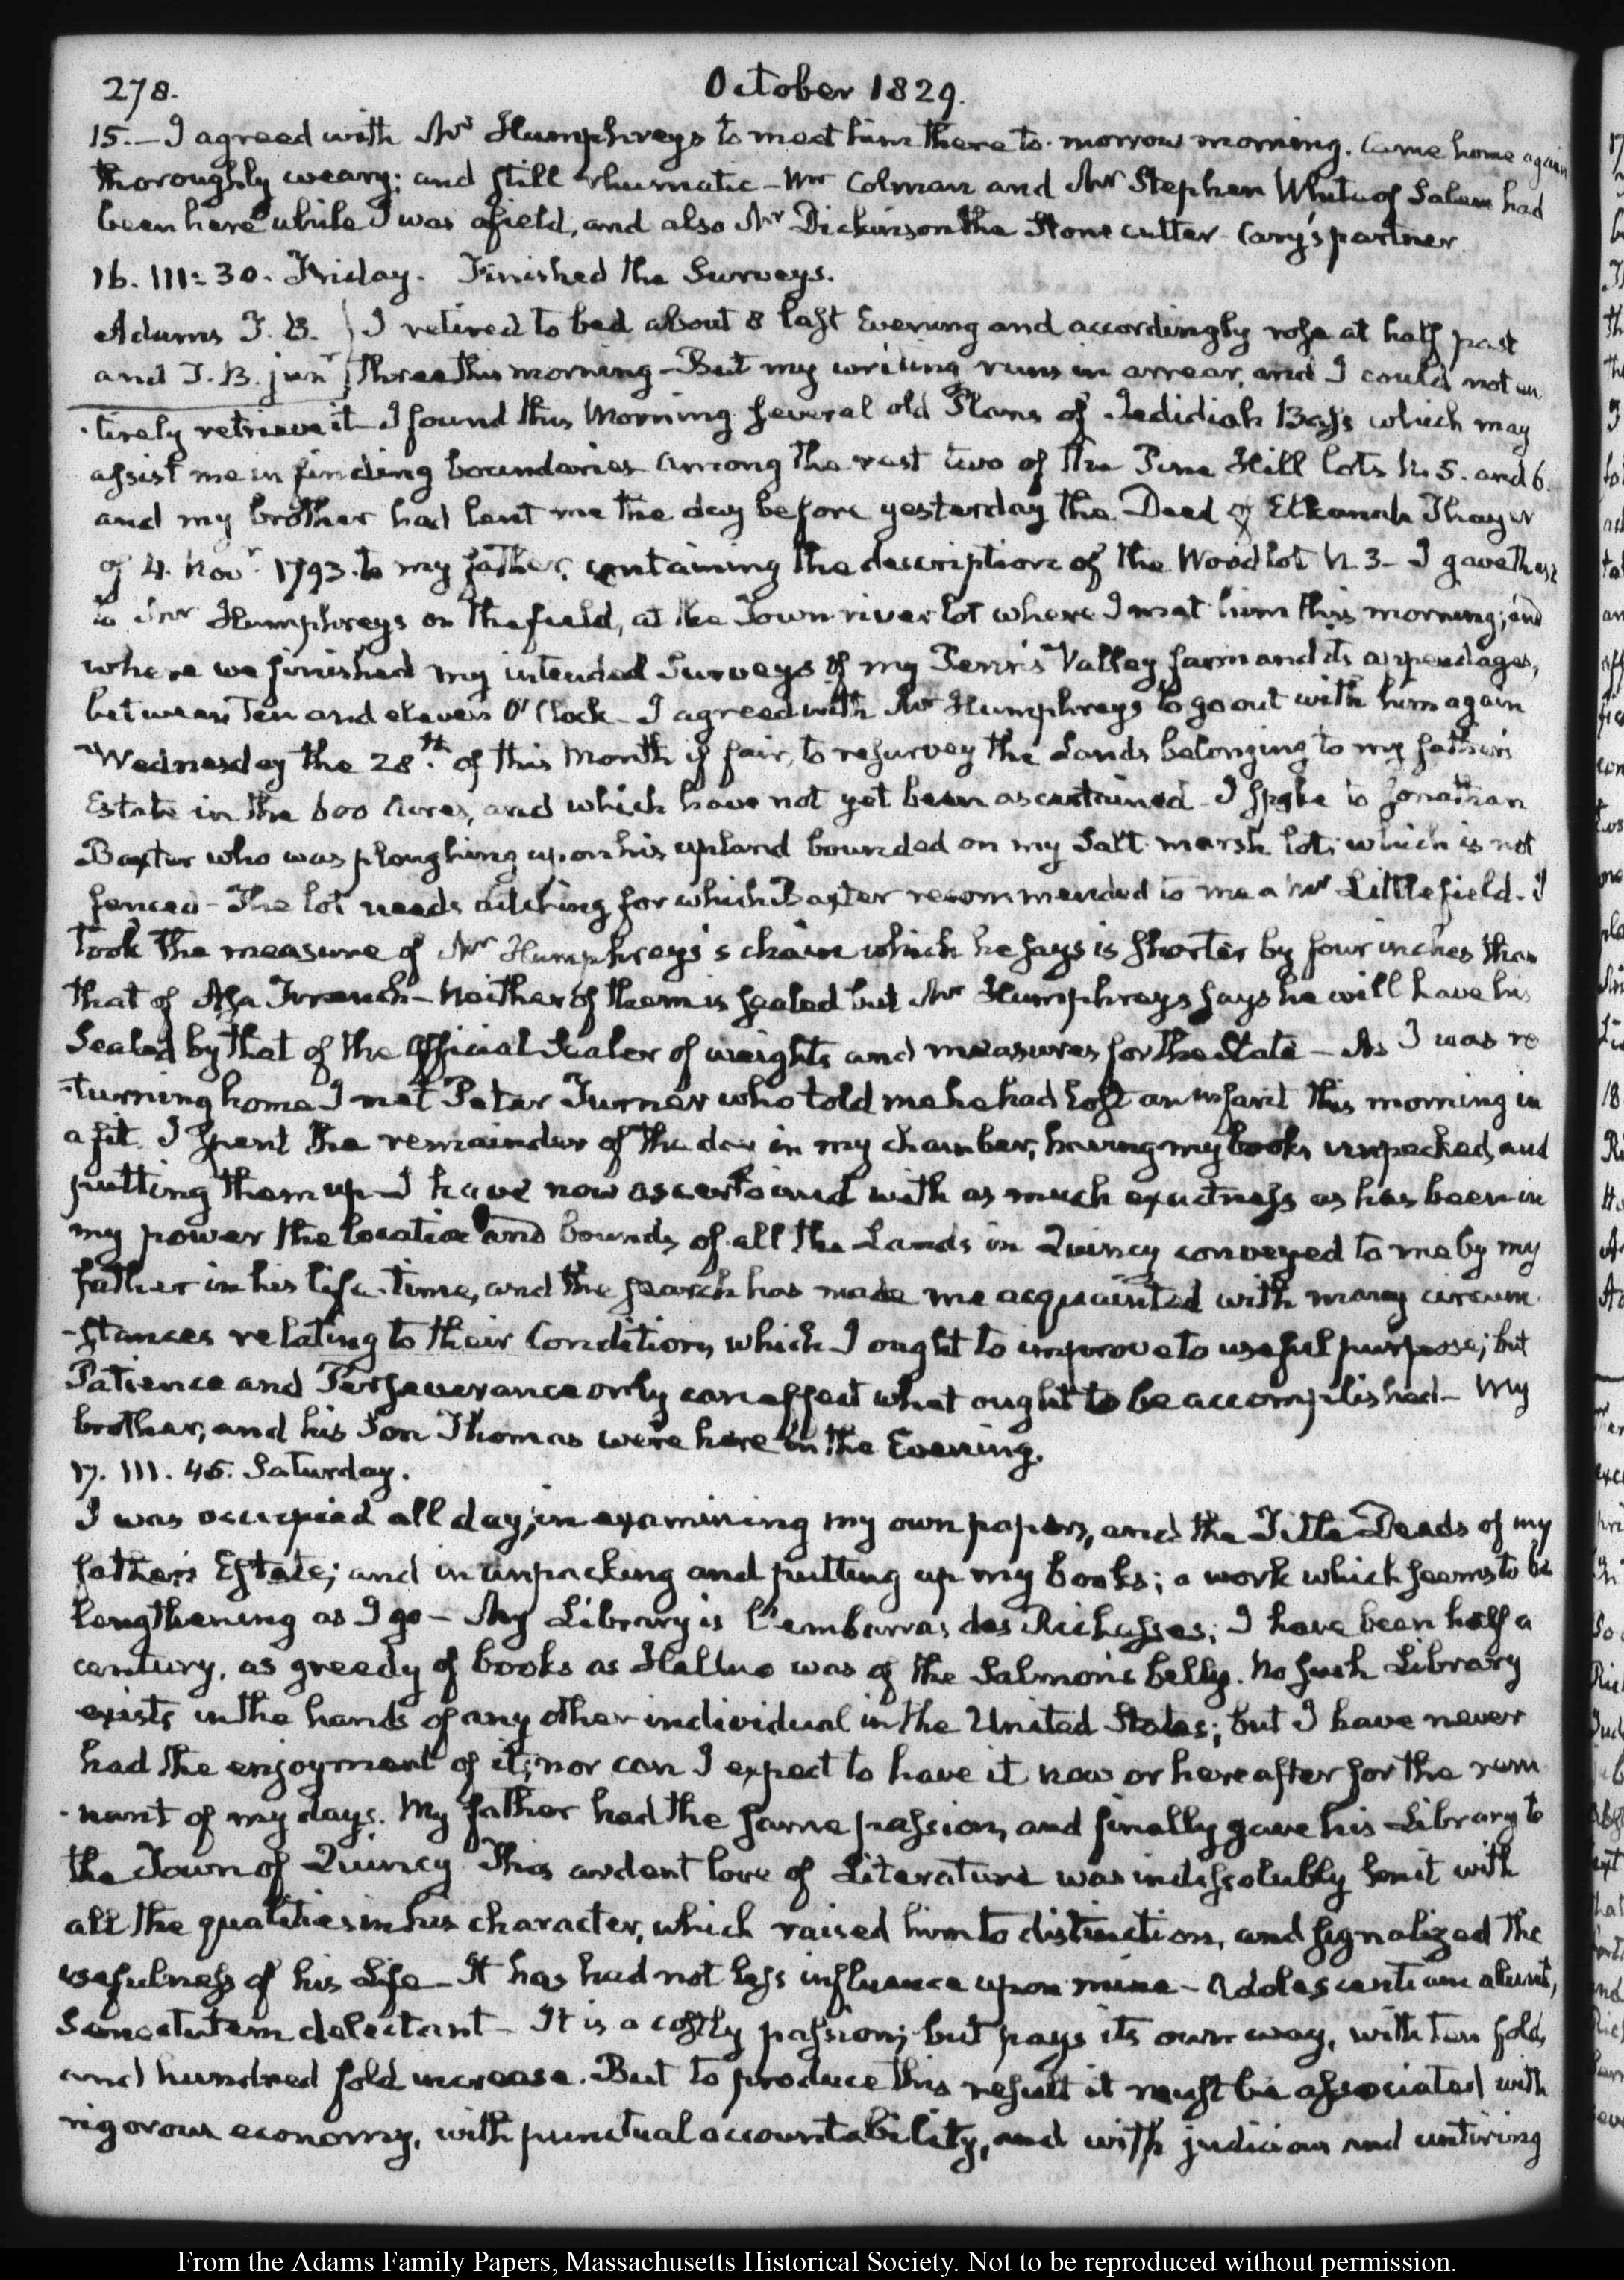 278.
October 1829.
15.— I agreed with Mr Humphreys to meet him there to-morrow morning. Came home again
thoroughly weary; and still rhumatic — Mr Colman and Mr Stephen White of Salem had
been here while I was afield, and also Mr Dickinson the Stone cutter - Cary's partner.
16. III: 30. Friday. Finished the Surveys.
Adams T. B. I retired to bed about 8 last Evening and accordingly rose at half past
and T. B. junr three this morning — But my writing runs in arrear, and I could not en
-tirely retrieve it — I found this Morning several old Plans of Jedidiah Bass which may
assist me in finding boundaries among the rest two of the Pine Hill lots N. 5. and 6.
and my brother had lent me the day before yesterday the Deed of Elkanah Thayer
of 4. Novr 1793. to my father, containing the description of the Wood lot N. 3 — I gave these
to Mr Humphreys on the field, at the Town river lot where I met him this morning; and
where we finished my intended Surveys of my Penn's Valley farm and its appendages,
between Ten and eleven O'Clock — I agreed with Mr Humphreys to go out with him again
Wednesday the 28th. of this Month if fair, to resurvey the Lands belonging to my father's
Estate in the 600 Acres, and which have not yet been ascertained — I spoke to Jonathan
Baxter who was ploughing upon his upland bounded on my Salt marsh lot; which is not
fenced — The lot needs ditching for which Baxter recommended to me a Mr Littlefield. I
took the measure of Mr Humphreys's chain which he says is shorter by four inches than
that of Asa French — Neither of them is sealed but Mr Humphreys says he will have his
Sealed by that of the Official Sealer of weights and measures for the State — As I was re
-turning home I met Peter Turner who told me he had lost an infant this morning in
a fit. I spent the remainder of the day in my chamber, having my books unpacked, and
putting them up — I have now ascertained with as much exactness as has been in
my power the location and bounds of all the Lands in Quincy conveyed to me by my
father in his life-time, and the search has made me acquainted with many circum
-stances relating to their Condition, which I ought to improve to useful purpose; but
Patience and Perseverance only can effect what ought to be accomplished — My
brother, and his Son Thomas were here in the Evening.
17. III. 45. Saturday.
I was occupied all day, in examining my own papers, and the Title Deeds of my
father's Estate; and in unpacking and putting up my books; a work which seems to be
lengthening as I go — My Library is l'embarras des Richesses; I have been half a
century, as greedy of books as Helluo was of the Salmon's belly. No such Library
exists in the hands of any other individual in the United States; but I have never
had the enjoyment of it; nor can I expect to have it now or hereafter for the rem
-nant of my days. My father had the same passion, and finally gave his Library to
the Town of Quincy. This ardent love of Literature was indissolubly knit with
all the qualities in his character, which raised him to distinction, and signalized the
usefulness of his Life — It has had not less influence upon mine — Adolescentiam alunt,
Senectutem delectant — It is a costly passion; but pays its own way, with ten fold,
and hundred fold increase. But to produce this result it must be associated with
rigorous economy, with punctual accountability, and with judicious and untiring
From the Adams Family Papers, Massachusetts Historical Society. Not to be reproduced without permission.